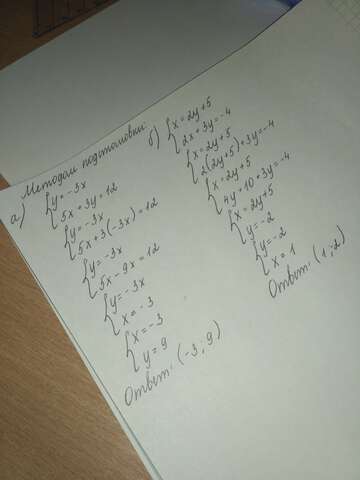 Методом подстановки:
а) { y = -3x
5x + 3y = 12
{ y = -3x
5x + 3(-3x) = 12
{ y = -3x
5x - 9x = 12
{ y = -3x
x = -3
{ x = -3
y = 9
Ответ: (-3; 9)
б) { x = 2y + 5
2x + 3y = -4
{ x = 2y + 5
2(2y + 5) + 3y = -4
{ x = 2y + 5
4y + 10 + 3y = -4
{ x = 2y + 5
y = -2
{ y = -2
x = 1
Ответ: (1; -2)